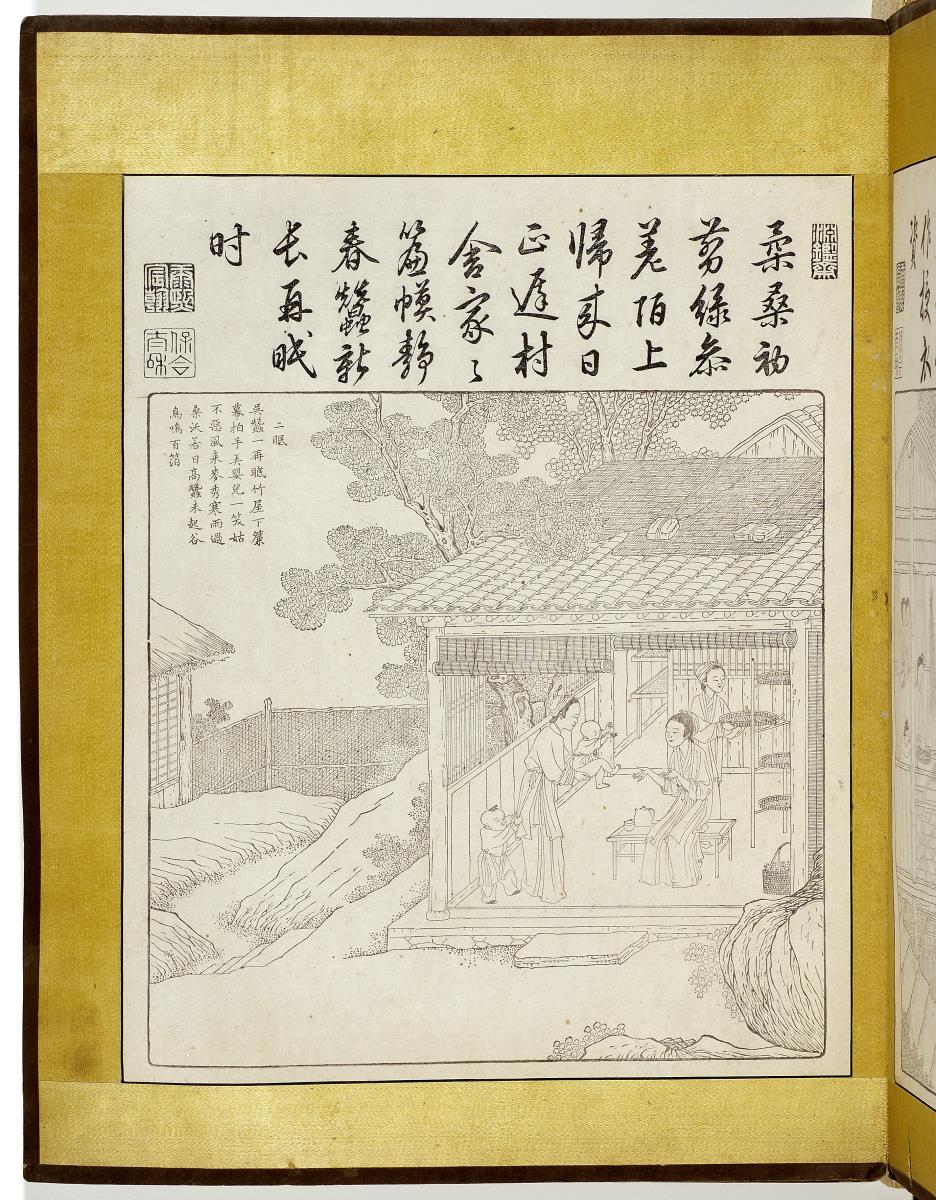 淵鑒齋
柔桑初
剪綠參
差陌上
歸來日
正遲村
舍家〻
簾幙靜
春蠶新
長再眠
時
康熙宸翰
保合太和
二眠
吳蠶一再眠竹屋下簾
幕拍手弄嬰兒一笑姑
不惡風來麥秀寒雨過
桑沃若日高蠶未起谷
鳥鳴百箔